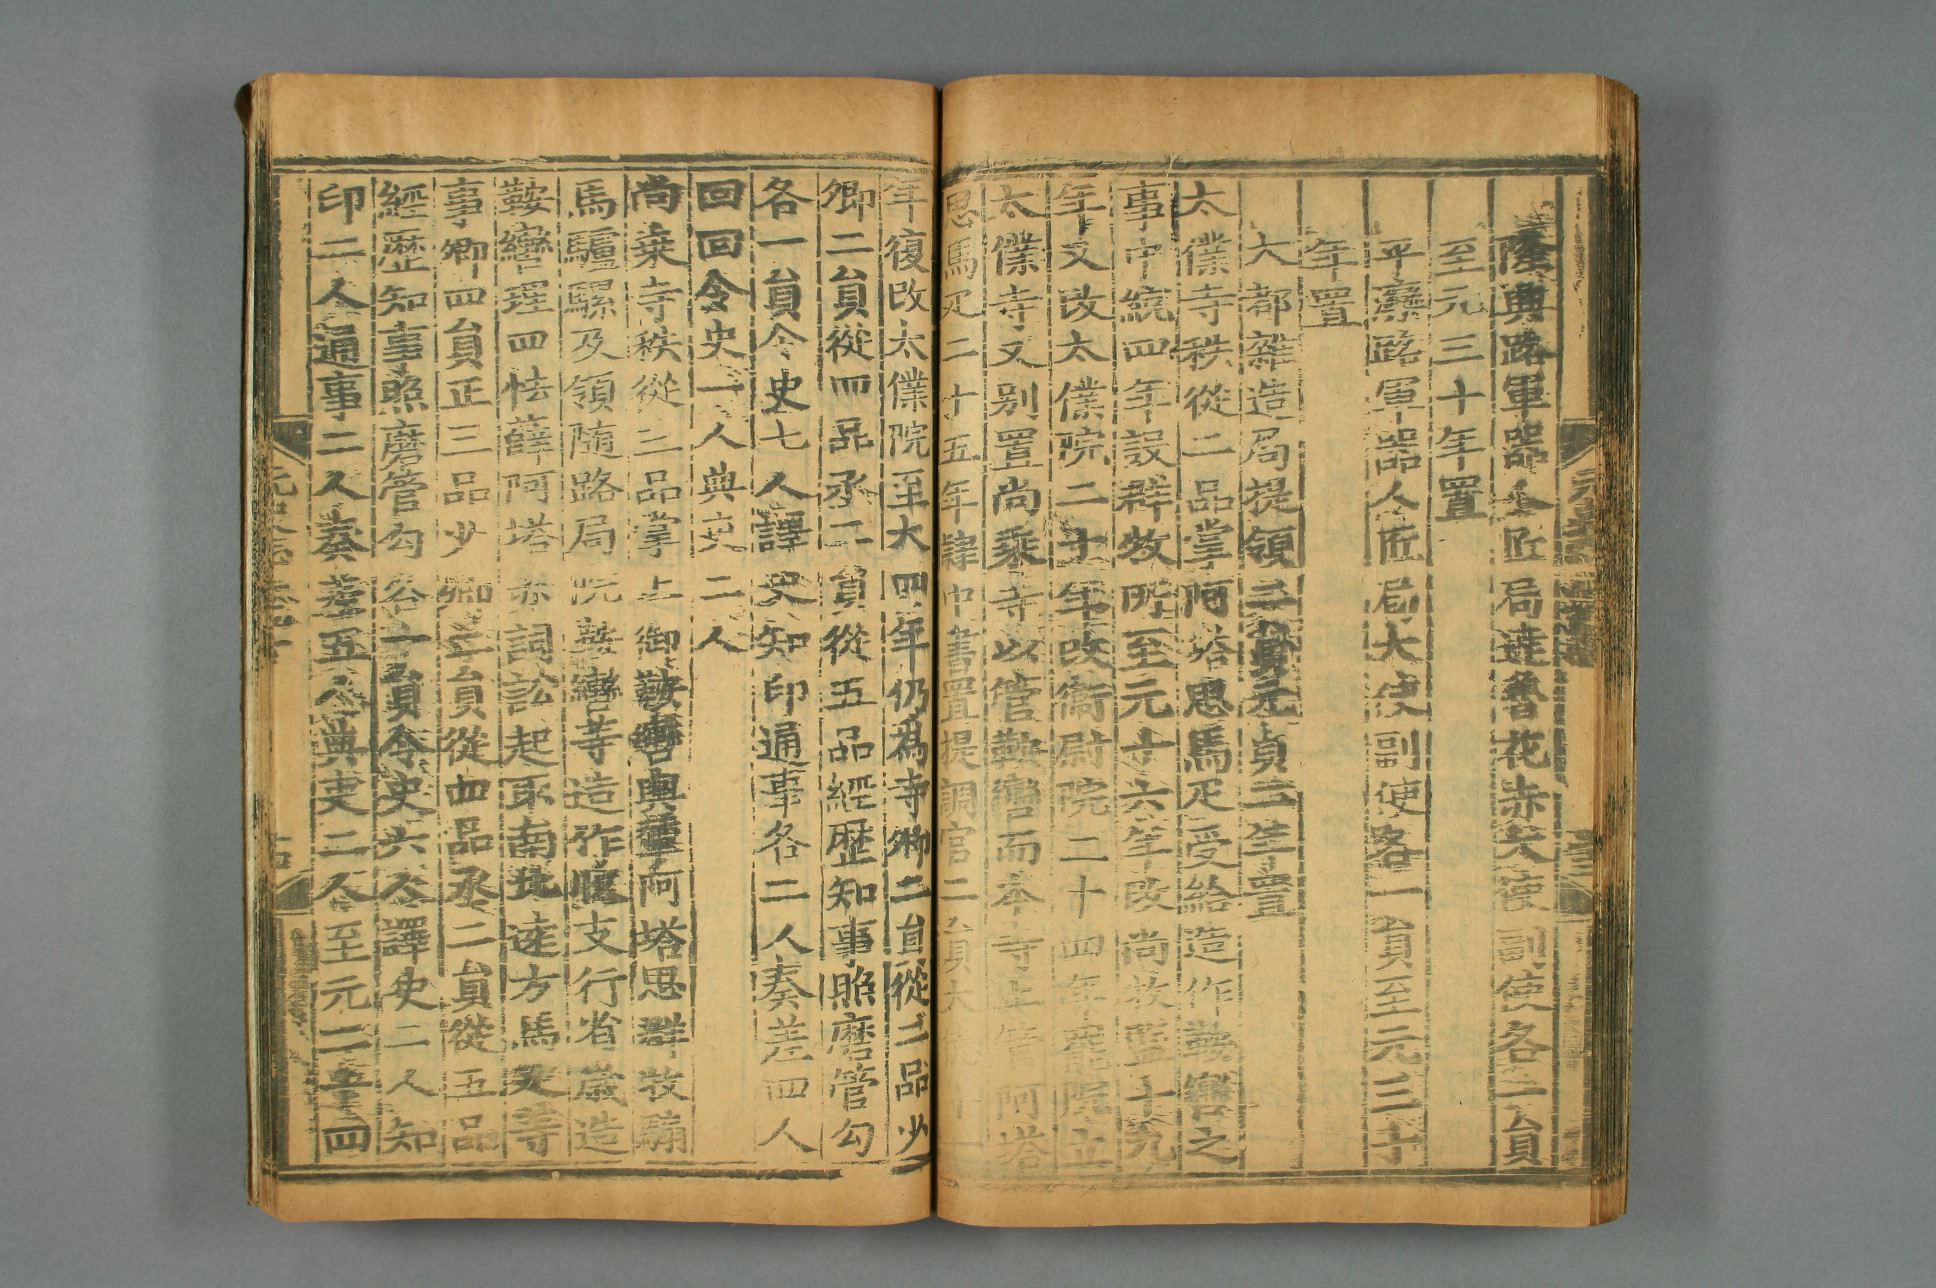 隆興路軍器人匠局達魯花赤大使副使各一員
至元三十年置
平灤路軍器人匠局大使副使各一員至元三十
年置
大都雜造局提領二員元貞二年置
太僕寺秩從二品掌阿塔思馬疋受給造作鞍轡之
事中統四年設群牧所至元十六年改尚牧監十九
年又改太僕院二十年改衞尉院二十四年罷院立
太僕寺又别置尚乘寺以管鞍轡而本寺止管阿塔
思馬疋二十五年隸中書置提調官二員大德十一
年復改太僕院至大四年仍爲寺卿二員從二品少
卿二員從四品丞二員從五品經歷知事照磨管勾
各一員令史七人譯史知印通事各二人奏差四人
回回令史一人典吏二人
尚乘寺秩從三品掌上御鞍轡輿輦阿塔思群牧騸
馬驢騾及領隨路局院鞍轡等造作收支行省歲造
鞍轡理四怯薛阿塔赤詞訟起取南北遠方馬疋等
事卿四員正三品少卿二員從四品丞二員從五品
經歷知事照磨管勾各一員令史六人譯史二人知
印二人通事二人奏差五人典吏二人至元二十四